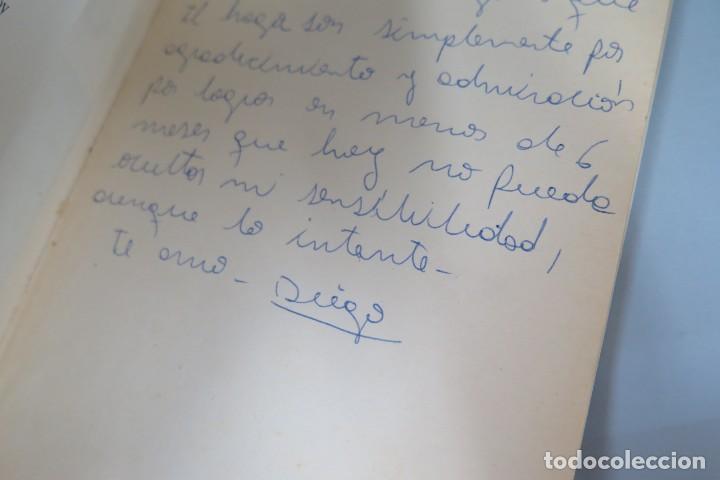 que
te haga son simplemente por
agradecimiento y admiración
por lograr en menos de 6
meses que hoy no pueda
ocultar mi sensibilidad,
aunque lo intente-
te amo- Diego
todocoleccion